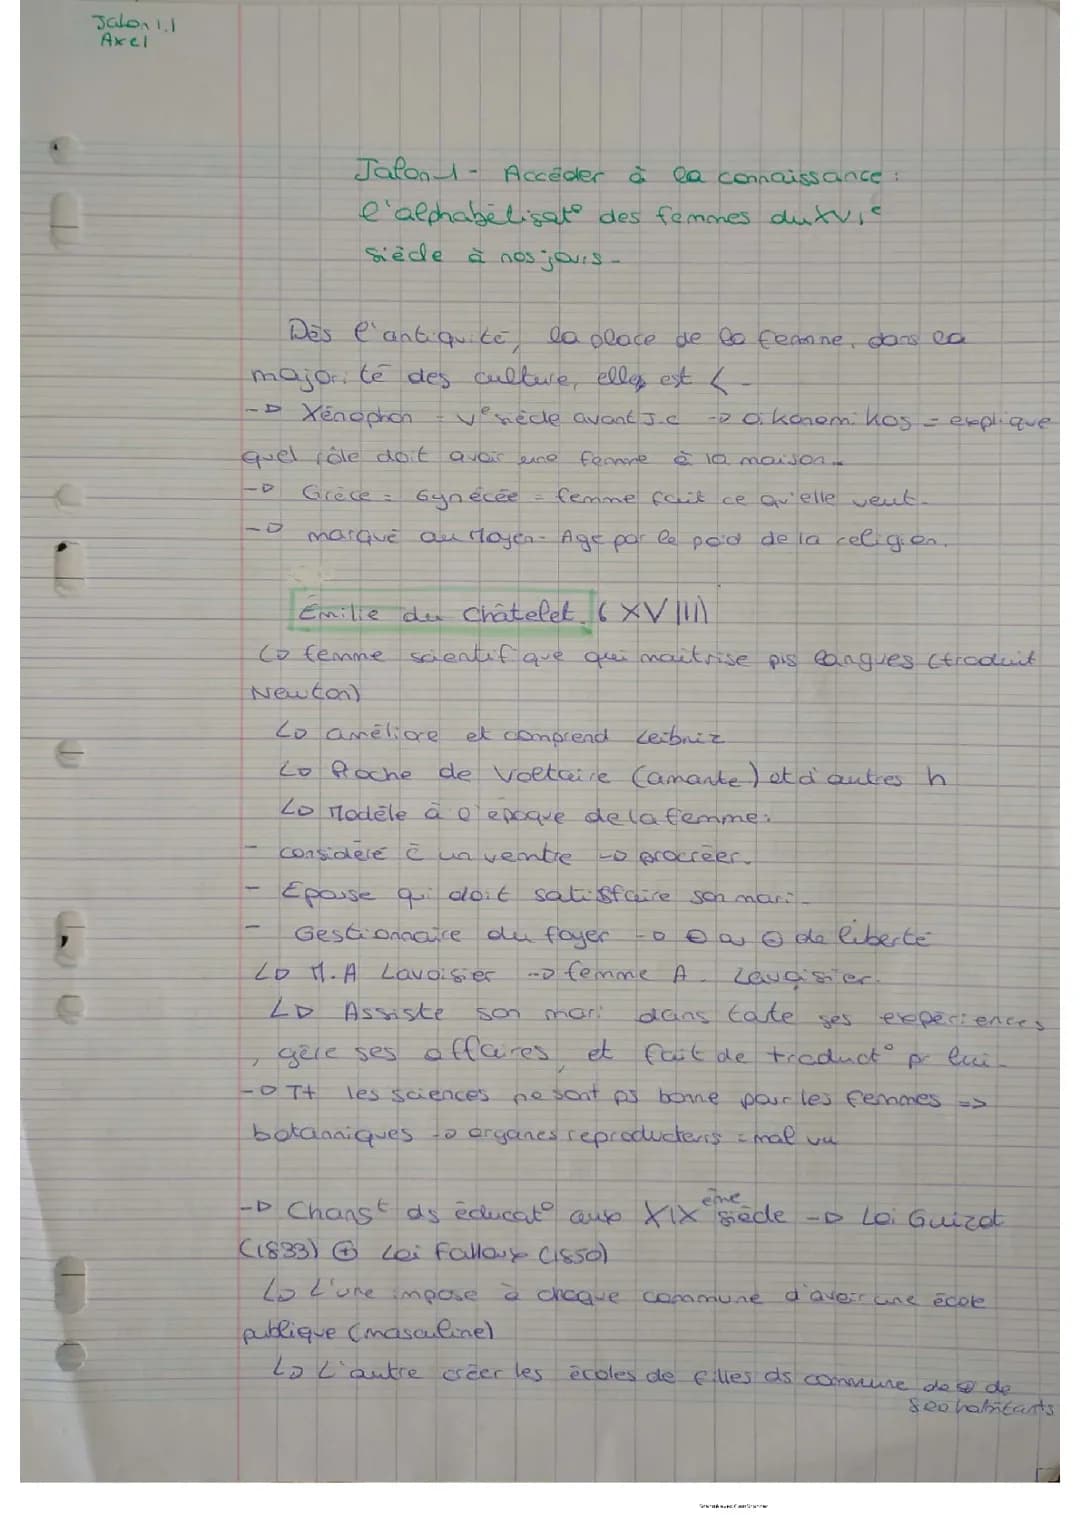 Jalon 1.1
Axel
Jalon 1 - Accéder à la connaissance :
l'alphabétisat° des femmes du XVIe
siècle à nos jours -
Dès l'antiquité, la place de la femme, dans la
majorité des culture, elles est < -
-> Xénophon = Ve siècle avant J.C -> oikonomikos = explique
quel rôle doit avoir une femme à la maison -
-> Grèce = Gynécée = femme fait ce qu'elle veut -
-> marqué au Moyen-Age par le poid de la religion.
Emilie du Châtelet (XVIII)
↳ femme scientifique qui maitrise pls langues (traduit
Newton)
↳ améliore et comprend Leibniz
↳ Proche de Voltaire (amante) et d'autres h
↳ Modèle à l'époque de la femme:
- considéré c̄ un ventre -> procréer.
- Epouse qui doit satisfaire son mari -
- Gestionnaire du foyer -> ⊕ ou ⊖ de liberté
↳ M.A Lavoisier -> femme A. Lavoisier.
↳ Assiste son mari dans toute ses expériences
, gère ses affaires, et fait de traduct° pr lui -
-> Tt les sciences ne sont ps bonne pour les femmes =>
botanniques -> organes reproducteurs = mal vu
-> Changt ds éducat° aux XIXème siècle -> Loi Guizot
(1833) ⊕ Loi Falloux (1850)
↳ L'une impose à chaque commune d'avoir une école
publique (masculine)
↳ L'autre créer les écoles de filles ds commune de ⊕ de
800 habitants